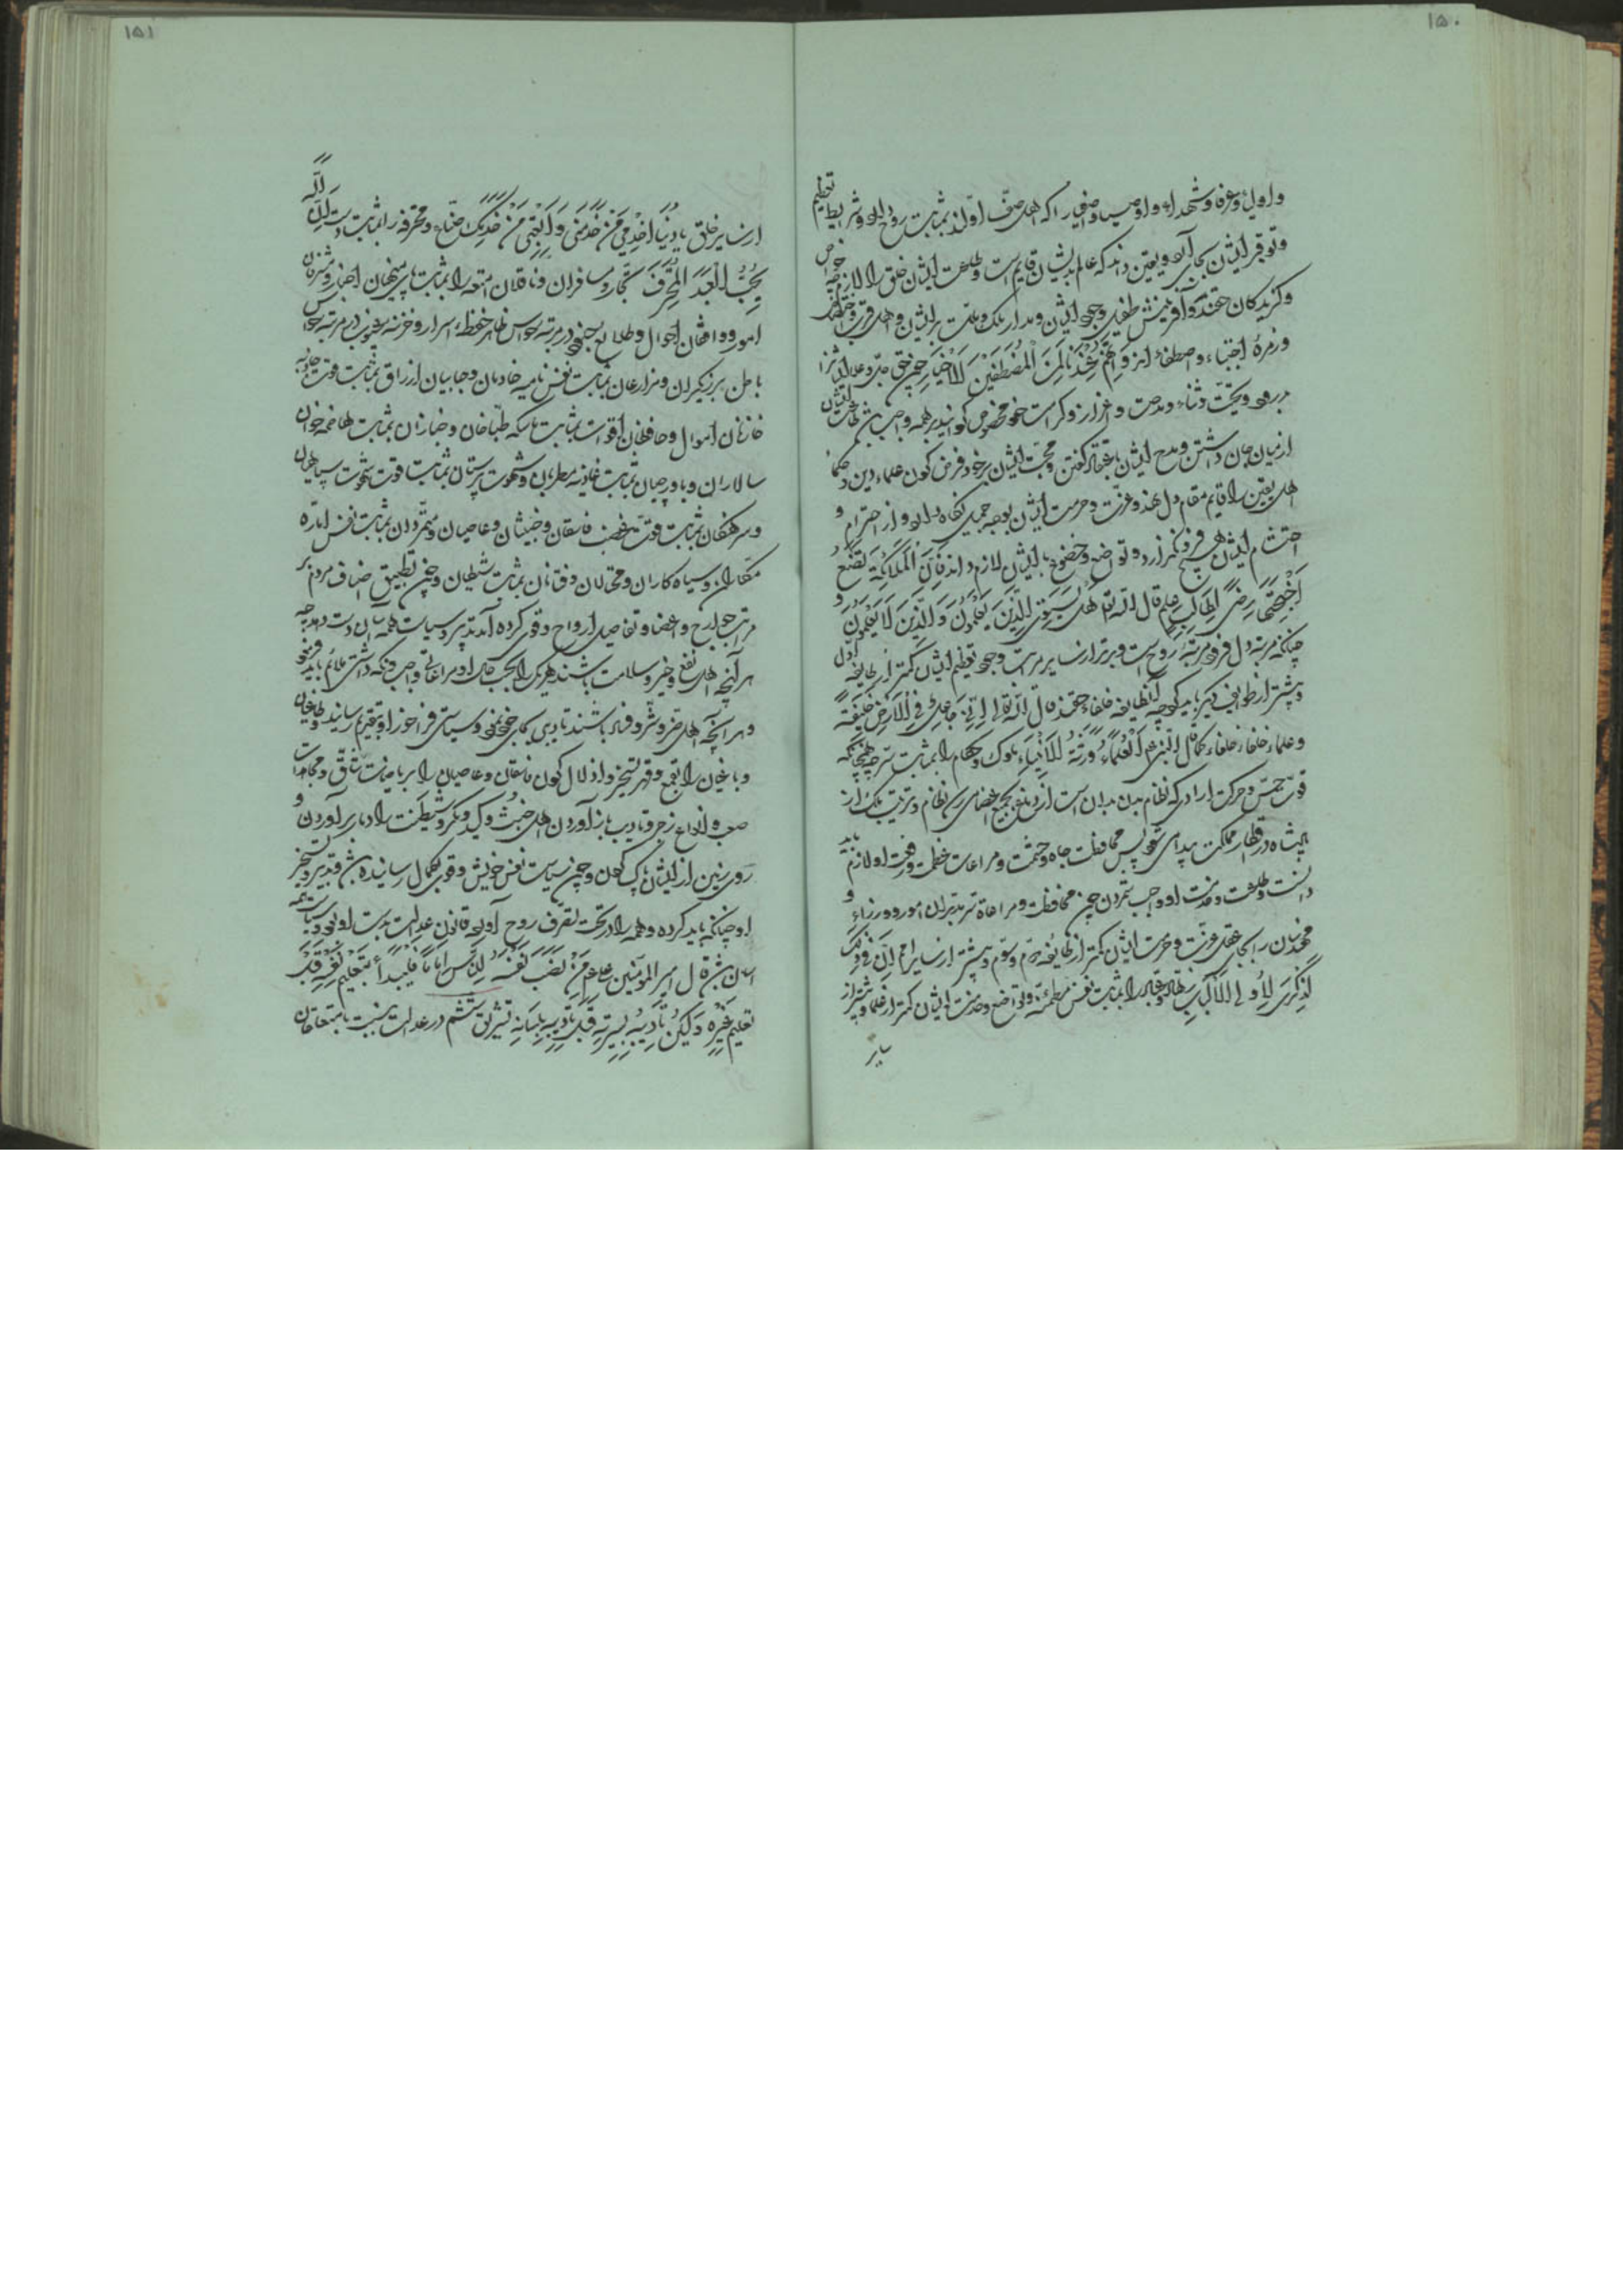 ۱۵۰
و اولیا و عرفا و شهداء و اوصیا و اصفیا را که اهل صف اولند بمثابت روح دارد و شرایط تعظیم
و توقیر ایشان بجای آرد و یقین داند که عالم بدیشان قایم است و طاعت ایشان خلق را لازم چه خواص
و گزیدگان حقند و آفرینش طفیل وجود ایشان و مدار ملک و ملت بر ایشان و اهل قربت
و زمرۀ اجتباء و اصطفاء اند وَاِنَّهُمْ عِنْدَنَا لَمِنَ الْمُصْطَفَیْنَ الْاَخْیَارِ حق جل و علا
درود و تحیت و ثناء و مدحت و اعزاز و کرامت خود مخصوص گردانید بر همه واجب
از میان جان داشتن و مدح ایشان گفتن و محبت ایشان بر خود فرض کردن علماء دین و حکماء
اهل یقین را قایم مقام دل نهد و عزت و حرمت ایشان بوجه جمیل نگاه دارد و از احترام و
احتشام ایشان هیچ فرو نگذارد و تواضع و خضوع با ایشان لازم داند فَاِنَّ الْمَلَائِکَةَ لَتَضَعُ
اَجْنِحَتَهَا رِضًی لِطَالِبِ عِلْمٍ قال الله تع هَلْ یَسْتَوِی الَّذِینَ یَعْلَمُونَ وَالَّذِینَ لَا یَعْلَمُونَ و
چنانکه مرتبۀ دل فرود مرتبۀ روح است و برتر از سایر مراتب وجود تعظیم ایشان کمتر از طایفۀ اول
و بیشتر از طوایف دیگر باید کرد چه آن طایفه خلفاء حقند قال الله تعالی اِنِّی جَاعِلٌ فِی الْاَرْضِ خَلِیفَةً
و علماء خلفاء خلفاء کما قال النبی عم اَلْعُلَمَاءُ وَرَثَةُ الْاَنْبِیَاءِ ملوک و حکام را بمثابت سر چه همچنانکه
قوت حس و حرکت ارادی که نظام بدن بدان است از دماغ بجمیع اعضا رسد نظام و ترتیب ملک از
پادشاه در اقطار مملکت پیدا شود پس محافظت جاه و حشمت و مراعات عظمت و رفعت او لازم باید
دانست و طاعت و خدمت او واجب شمردن همچنین محافظت و مراعات مدبران امور و وزراء و
بجای عقل عزت و حرمت ایشان کمتر از طایفۀ دوم و سوم و بیشتر از سایر امم اِنَّ فِی ذٰلِکَ
لَذِکْرٰی لِاُولِی الْاَلْبَابِ زهاد و عباد را بمثابت نفس مطمئنه و تواضع و خدمت ایشان کمتر از علما و بیشتر از
سایر
۱۵۱
از سایر خلق یَا دُنْیَا اخْدِمِی مَنْ خَدَمَنِی وَاَتْعِبِی مَنْ خَدَمَکِ صناع و محترفه را بمثابت دست اِنَّ اللهَ
یُحِبُّ الْعَبْدَ الْمُحْتَرِفَ تجار و مسافران و ناقلان امتعه را بمثابت پای منهیان اخبار و مشرفان
امور و واقفان احوال و طلایع جنود در مرتبۀ حواس ظاهر حفظۀ اسرار و خزنۀ غیوب در مرتبۀ حواس
باطن برزیگران و مزارعان بمثابت نفس نامیه خادمان و جابیان ارزاق بمثابت قوت جاذبه
خازنان اموال و حافظان اقوات بمثابت ماسکه طباخان و خبازان بمثابت هاضمه خوان
سالاران و باورچیان بمثابت غاذیه مطربان و شهوت پرستان بمثابت قوت شهوت سپاهیان
و سرهنگان بمثابت قوت غضب فاسقان و خبیثان و عاصیان و متمردان بمثابت نفس اماره
مکاران و سیاه کاران و محتالان و فتانان بمثابت شیطان و چون تطبیق اصناف مردم بر
مراتب جوارح و اعضا و تفاصیل ارواح و قوی کرده آمد تدبیر و سیاست همه بدان دست دهد چه
هر آنچه اهل نفع و خیر و سلامت باشند هر یک را بحسب حال او مراعاتی واجب و نگه داشتی ملائم باید فرمود
و هر آنچه اهل ضر و شر و فساد باشند تادیبی بجای خود و سیاستی فراخور او بتقدیم رسانید و طاغیان
و باغیان را بقمع و قهر و تسخیر و اذلال کردن فاسقان و عاصیان را بریاضت شاق و مجاهدات
صعب و انواع زجر و تادیب باز آوردن اهل خبث و کید و مکر و شیطنت را دمار برآوردن و
روی زمین از ایشان پاک کردن و چون سیاست نفس خویش و قوی بکمال رسانیده باشد و تدبیر و تسخیر
او چنانکه باید کرده و همه را در تحت تصرف روح آورده قانون عدالت بدست او بود و سیاست همه
آسان باشد قال امیر المؤمنین عم مَنْ نَصَبَ نَفْسَهُ لِلنَّاسِ اِمَامًا فَلْیَبْدَأْ بِتَعْلِیمِ نَفْسِهِ قَبْلَ
تَعْلِیمِ غَیْرِهِ وَلْیَکُنْ تَأْدِیبُهُ بِسِیرَتِهِ قَبْلَ تَأْدِیبِهِ بِلِسَانِهِ تشریق ششم در عدالت بنسبت با متعلقان